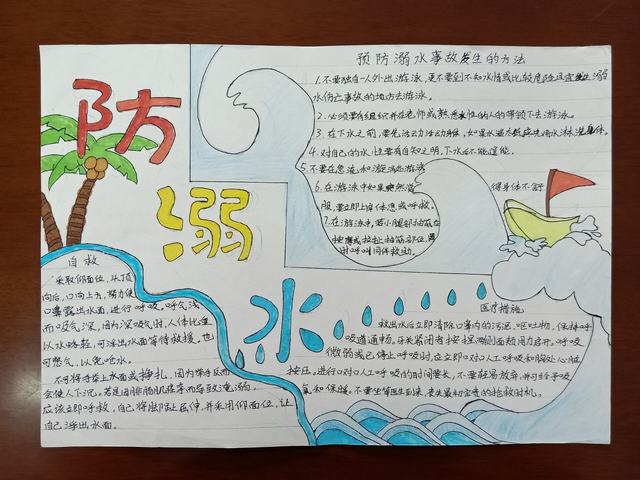 防溺水
预防溺水事故发生的方法
1.不要独自一人外出游泳,更不要到不知水情或比较危险且宜发生溺
水伤亡事故的地方去游泳。
2.必须要有组织并在老师或熟悉水性的人的带领下去游泳。
3.在下水之前,要先活动活动身体,如果水温太低应先用水淋洗身体。
4.对自己的水性要有自知之明,下水后不能逞能。
5.不要在急流和漩涡处游泳
6.在游泳中如果突然觉得身体不舒
服,要立即上岸休息或呼救。
7.在游泳中,若小腿部抽筋
按摩或拉扯抽筋部位,
时呼叫同伴救助。
自救
采取仰面位,头顶
向后,口向上方,努力使
口鼻露出水面,进行呼吸。呼气浅
而吸气深,因为深吸气时,人体比重
以水略轻,可浮出水面等待救援,也
可憋气,以免呛水。
不可将手举上水面或挣扎,因为举手反而
会使人下沉。若是因腓肠肌痉挛而导致淹溺,
应该立即呼救,自己将脚
伸,并采用仰面位,让
自己浮出水面。
医疗措施
救出水后立即清除口鼻内的污泥、呕吐物,保持呼
吸道通畅。牙关紧闭者按捏两侧面颊用力启开。呼吸
微弱或已停止呼吸时,应立即口对口人工呼吸和胸处心脏
按压,进行口对口人工呼吸的时间要长,不要轻易放弃,并可给予吸
氧和保暖。不要坐等医生到来,丧失最初宝贵的抢救时机。